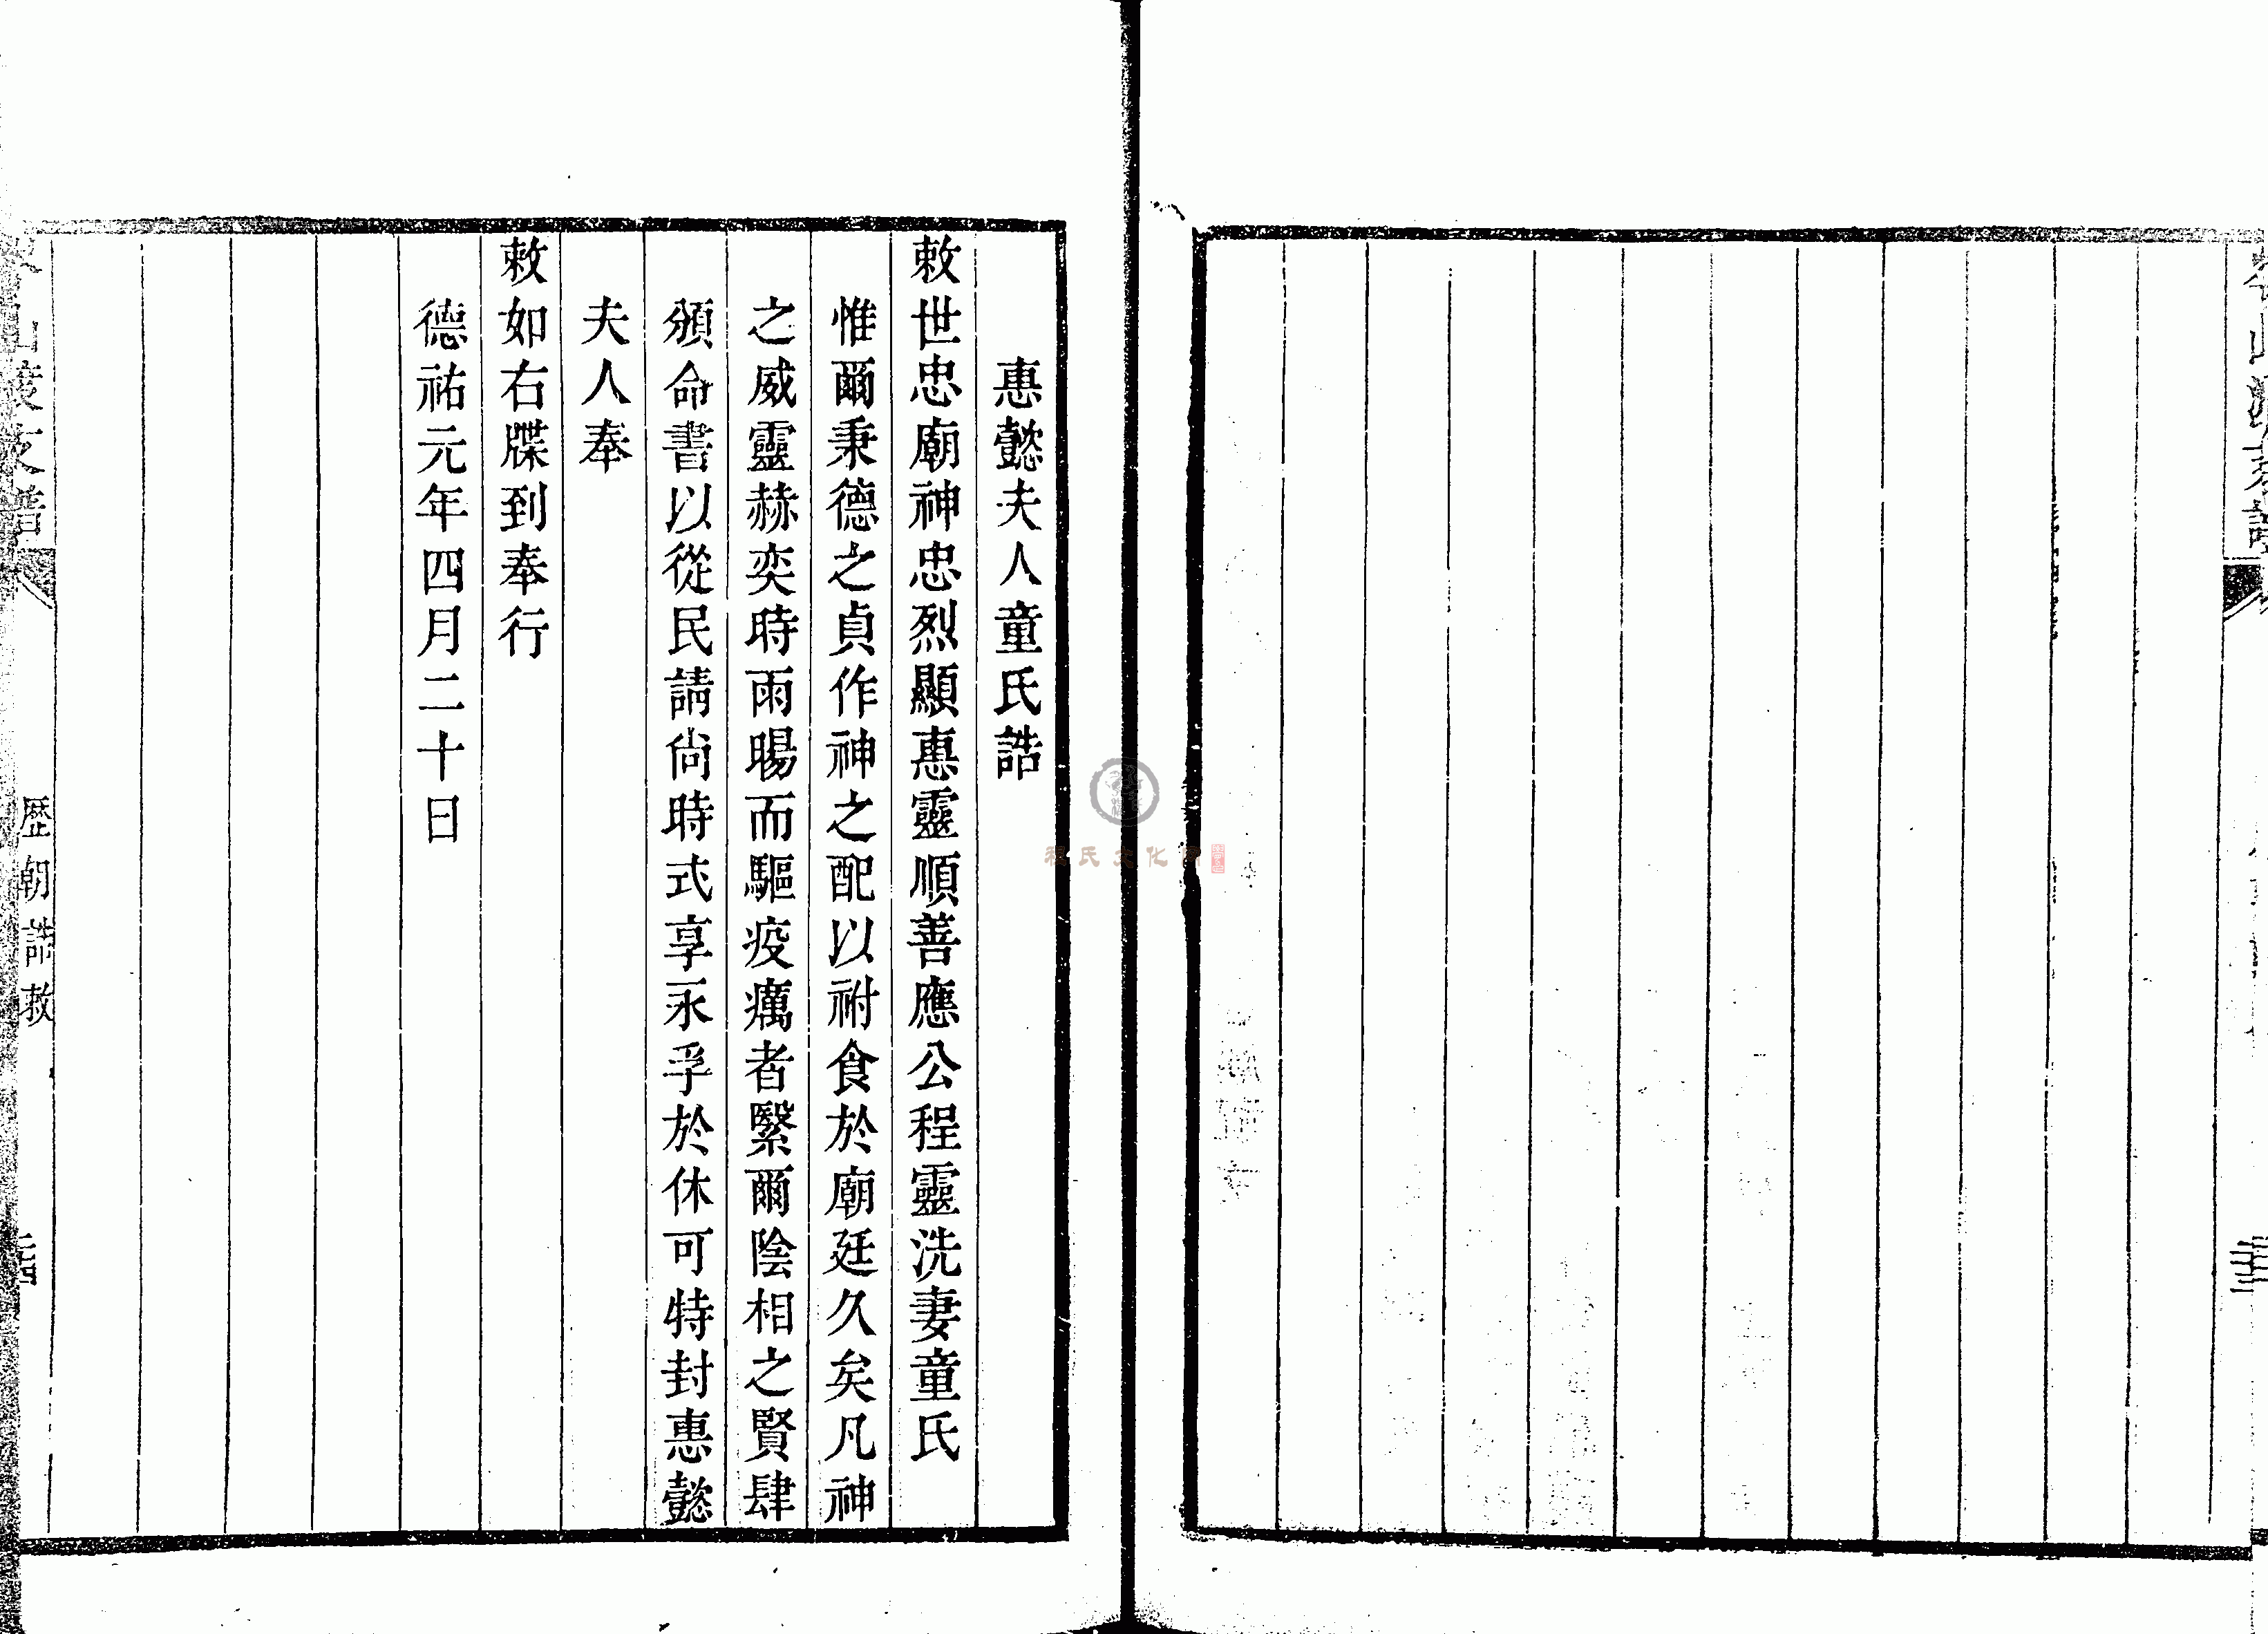 惠懿夫人童氏誥
敕世忠廟神忠烈顯惠靈順善應公程靈洗妻童氏
惟爾秉德之貞作神之配以祔食於廟廷久矣凡神
之威靈赫奕時雨暘而驅疫癘者緊爾陰相之賢肆
頒命書以從民請尙時式享永孚於休可特封惠懿
夫人奉
敕如右牒到奉行
德祐元年四月二十日
歷朝誥敕
氏文化